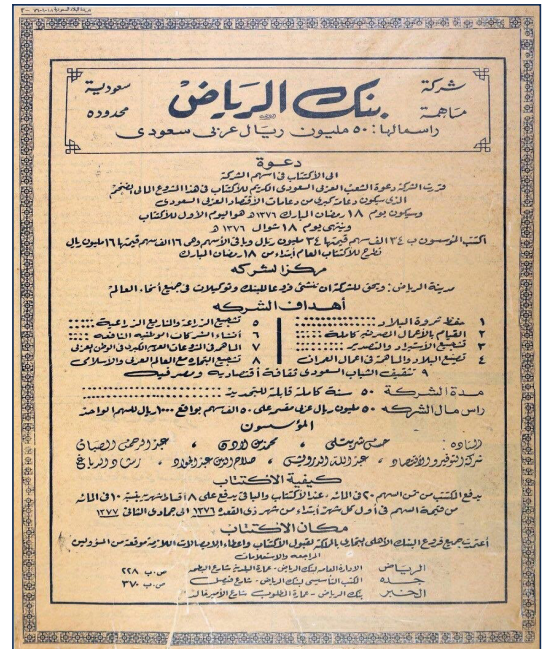 شركة سعودية
بنك الرياض
مساهمة محدوده
راسمالها : ٥٠ مليون ريال عربى سعودى
دعوة
الى الاكتتاب فى اسهم الشركة
قررت الشركة دعوة الشعب العربى السعودى الكريم للاكتتاب فى هذا المشروع المالى الضخم
الذى سيكون دعامة كبرى من دعامات الاقتصاد العربى السعودى
وسيكون يوم ١٨ رمضان المبارك ١٣٧٦ هـ هو اليوم الاول للاكتتاب
وينتهى يوم ١٨ شوال ١٣٧٦ هـ
اكتتب المؤسسون ب ٣٤ الف سهم قيمتها ٣٤ مليون ريال وباقى الاسهم وهى ١٦ الف سهم قيمتها ١٦ مليون ريال
تطرح للاكتتاب العام ابتداء من ١٨ رمضان المبارك
مركز الشركه
مدينة الرياض : ويحق للشركة ان تنشئ فروعا للبنك وتوكيلات فى جميع أنحاء العالم
أهداف الشركه
١ حفظ ثروة البلاد
٢ القيام بالأعمال المصرفية كاملة
٣ تشجيع الأستيراد والتصدير
٤ تصنيع البلاد والمساهمة فى اعمال العمران
٥ تشجيع الزراعة والمشاريع الزراعية
٦ أنشاء الشركات الوطنيه النافعه
٧ المساهمة فى المشروعات العربية الكبرى فى الوطن العربى
٨ تشجيع التجارة مع العالم العربى والاسلامى
٩ تثقيف الشباب السعودى ثقافة أقتصادية ومصرفية
مدة الشركة ٥٠ سنة كاملة قابلة للتجديد
راس مال الشركه ٥٠ مليون ريال عربى مقسم على ٥٠ الف سهم بواقع ١٠٠٠ ريال للسهم الواحد
المؤسسون
السادة : حسن شربتلى ، محمد بن لادن ، عبد الرحمن الصبان
شركة التوفير والأقتصاد ، عبد الله الدرويش ، صلاح الدين عبد الجواد ، رشاد الدباغ
كيفية الاكتتاب
يدفع المكتتب من ثمن السهم ٢٠ فى المائه ، عند الاكتتاب والباقى يدفع على ٨ أقساط شهرية بنسبة ١٠ فى المائه
من قيمة السهم فى أول كل شهر أبتداء من شهر ذى القعده ١٣٧٦ الى جمادى الثانى ١٣٧٧
مكان الاكتتاب
أعتبرت جميع فروع البنك الأهلى التجارى بالمملكة لقبول الاكتتاب واعطاء الايصالات اللازمة موقعة من المسؤولين
المراجعه والاستعلامات
الرياض الادارة العامه لبنك الرياض - عمارة البلدية شارع البطحه ص . ب ٢٢٨
جده المكتب التأسيسى لبنك الرياض - شارع فيصل ص . ب ٣٧٠
الخبر بنك الرياض - عمارة المطلوب شارع الأمير خالد